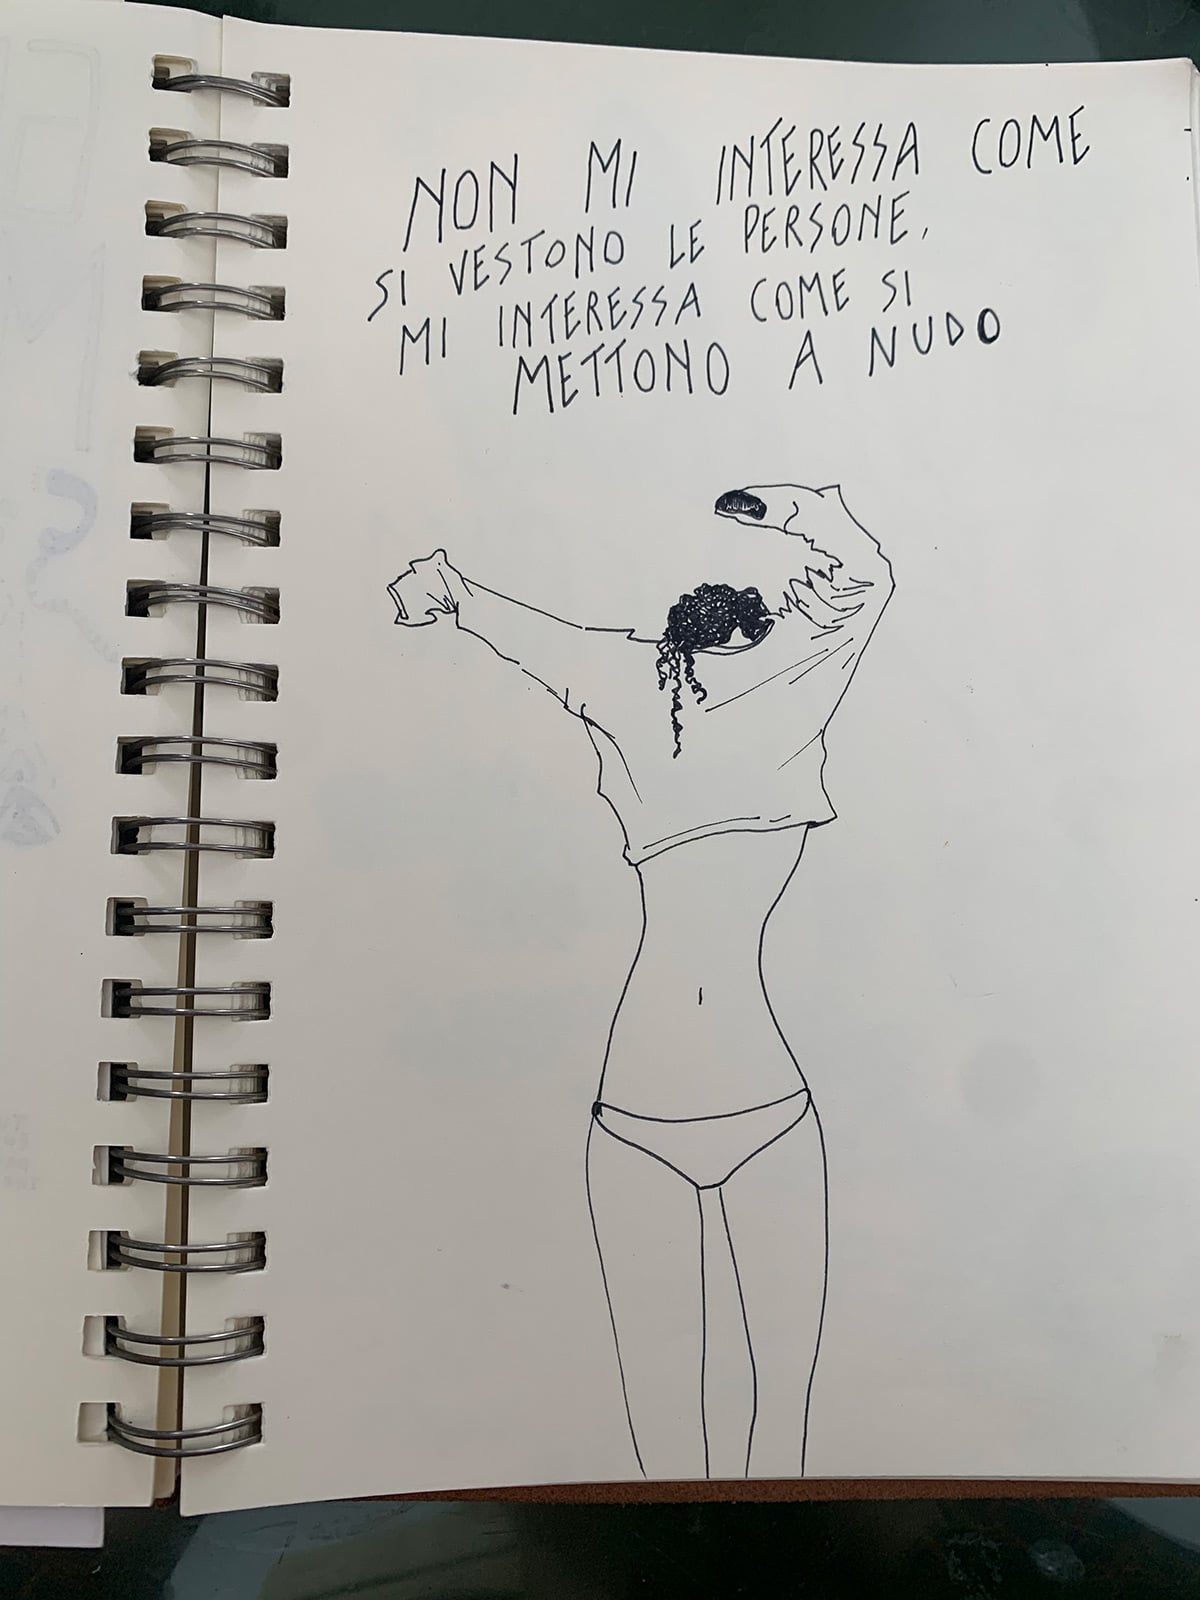 NON MI INTERESSA COME
SI VESTONO LE PERSONE,
MI INTERESSA COME SI
METTONO A NUDO